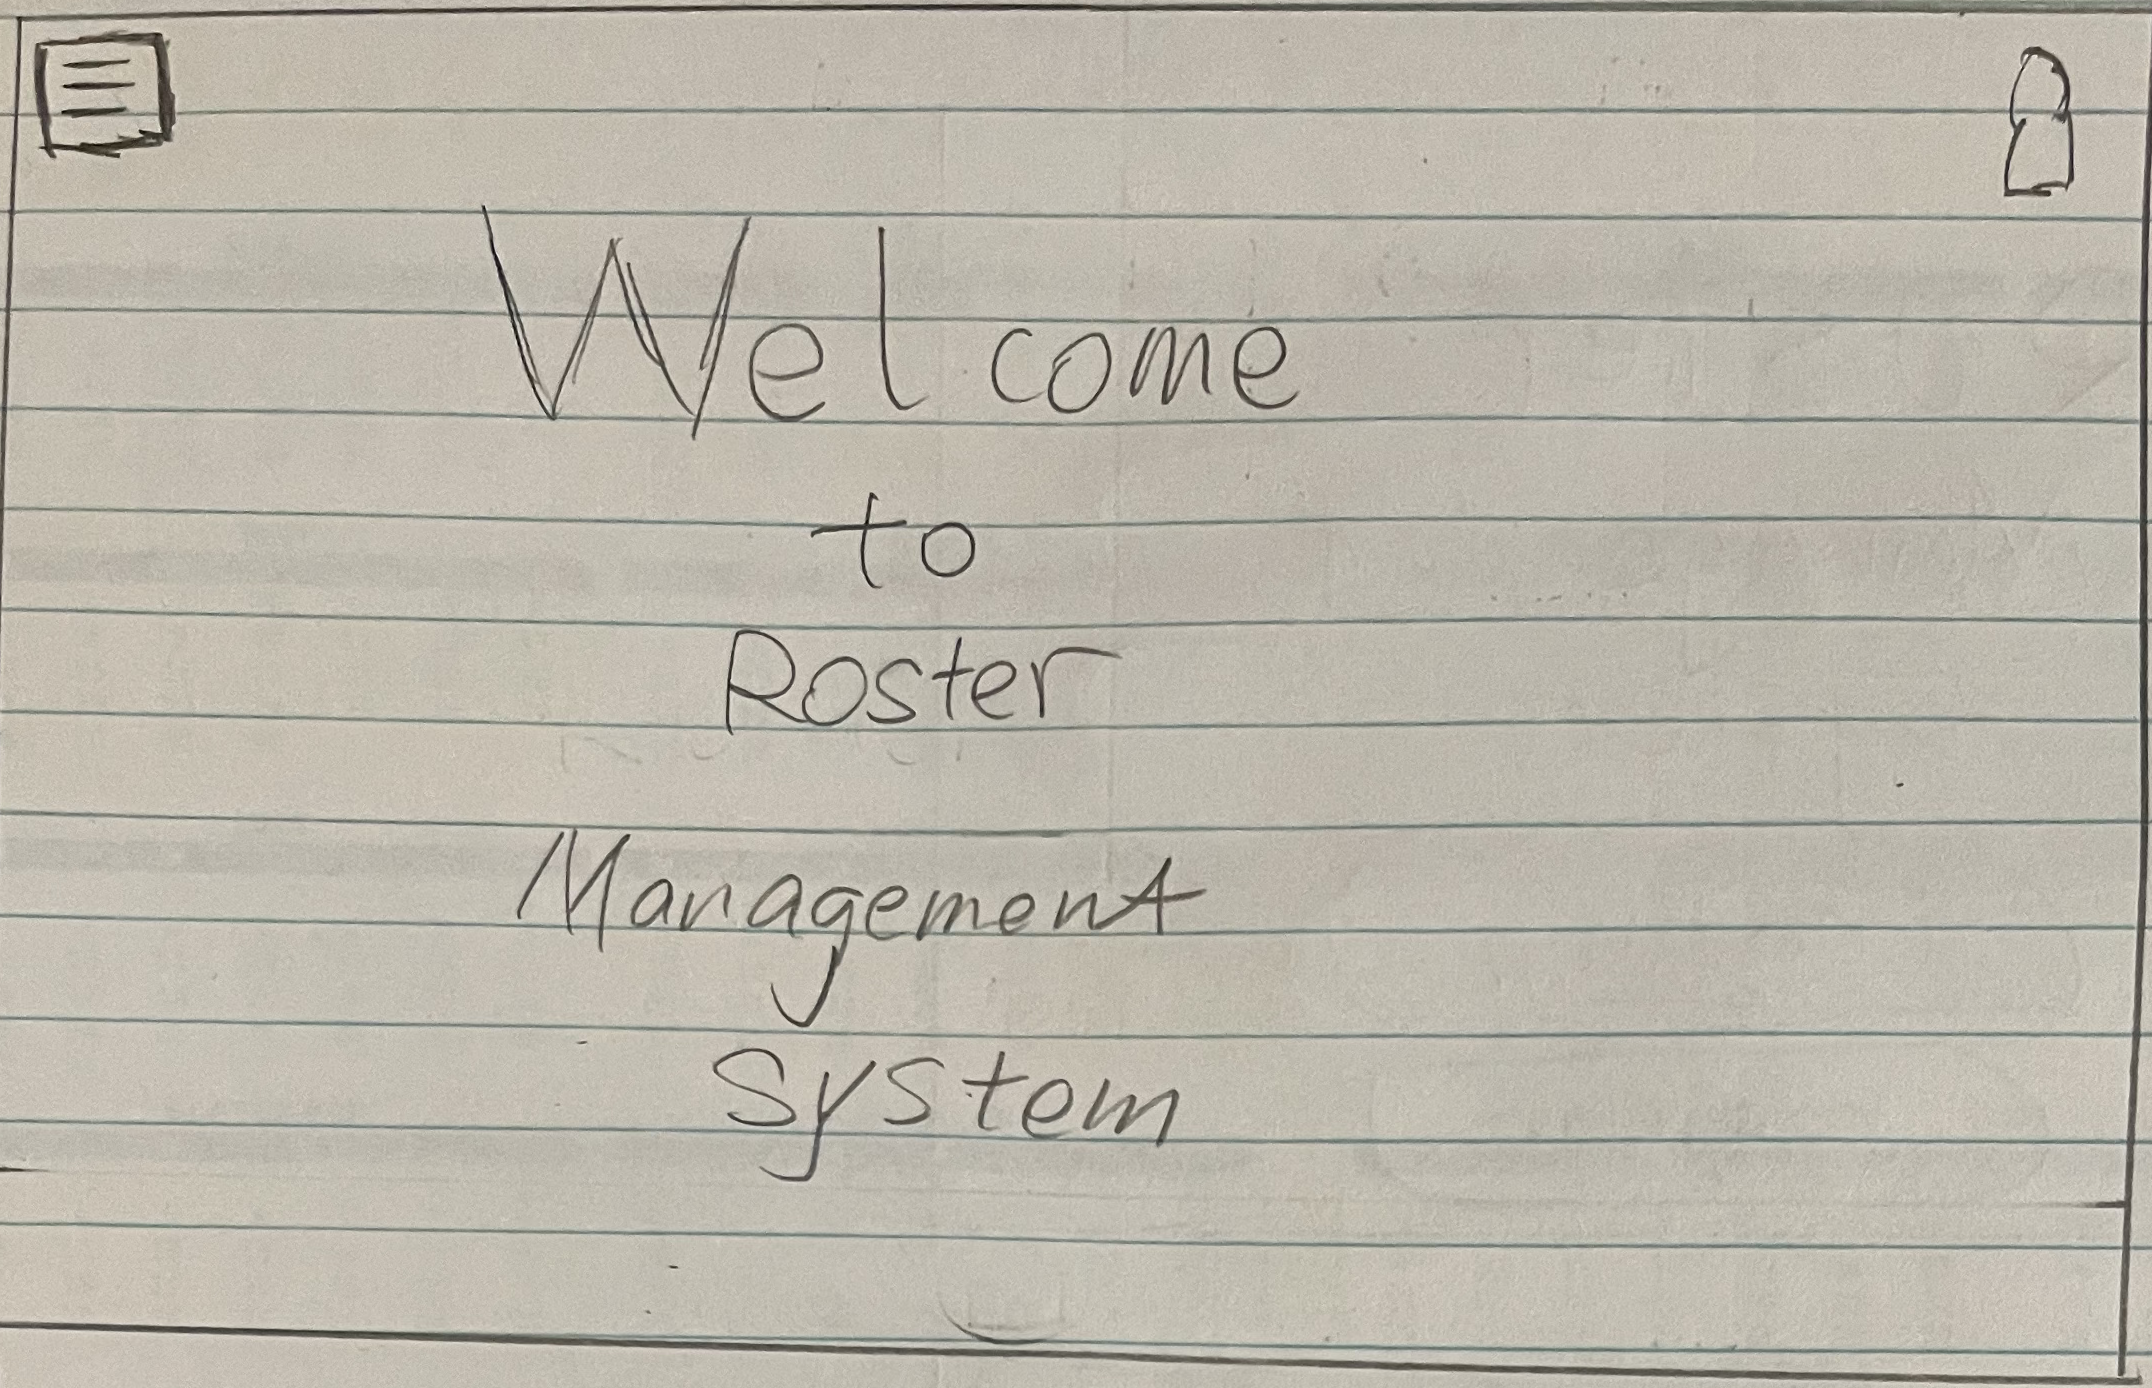 Welcome
to
Roster
Management
System